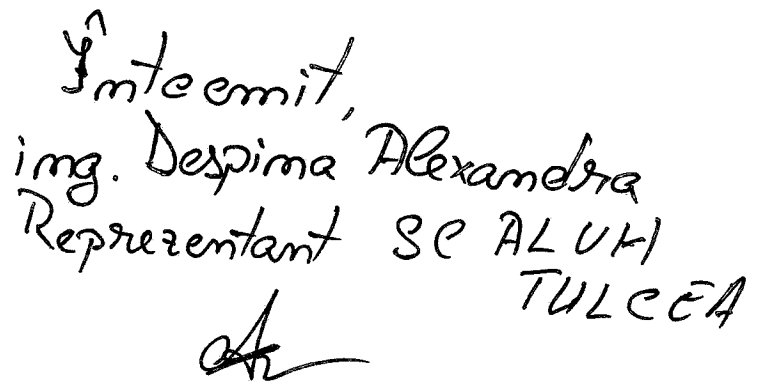 Întocmit,
ing. Despina Alexandra
Reprezentant SC ALUM
TULCEA